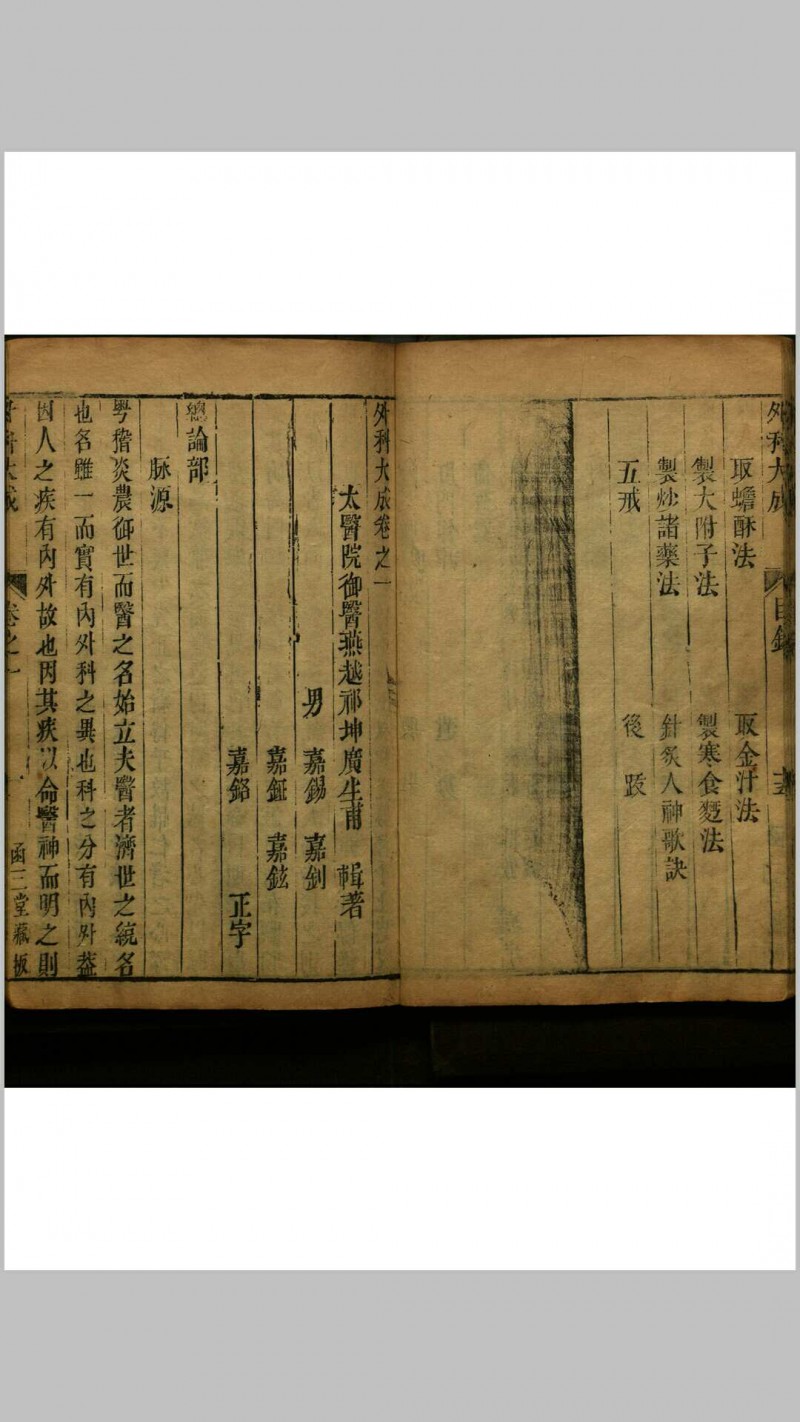 外科大成 目錄
取蟾酥法 取金汁法
製大附子法 製寒食麪法
製炒諸藥法 針灸人神歌訣
五戒 後跋
外科大成卷之一
太醫院御醫燕越祁坤廣生甫 輯著
男 嘉錫 嘉釗
嘉鉦 嘉鉉
嘉銘 正字
總論部
脉源
粤稽炎農御世而醫之名始立夫醫者濟世之統名
也名雖一而實有內外科之異也科之分有內外葢
因人之疾有內外故也因其疾以命醫神而明之則
外科大成 卷之一 一 函三堂藏板